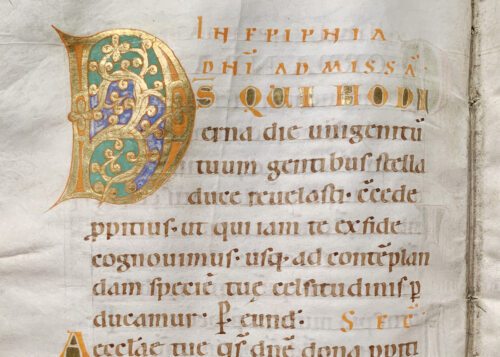 IN EPIPHIA
DNĪ AD MISSĀ
DS̄ QUI HODI
erna die unigenitū
tuum gentibus stella
duce reuelasti· c̄cede
ꝓpitius· ut qui iam te ex fide
cognouimus· usq; ad contēplan
dam speciē tuę celsitudinis ꝑ
ducamur· Ꝑ eund̄· SECR̄
Aecclæ tuę q̄s dn̄e dona ꝓpiti